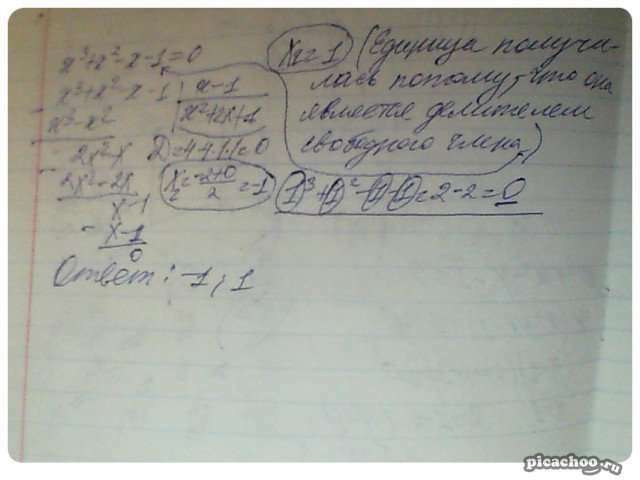 x³+x²-x-1=0
x³+x²-x-1 | x-1
x³-x² | x²+2x+1
- 2x²-x
2x²-2x
x-1
- x-1
0
D=4-4·1·1=0
x₂=(-2+0)/2=-1
Ответ: -1; 1
x₁=1 (Единица получи-
лась потому, что она
является делителем
свободного члена)
1³+1²-1-1=2-2=0
picachoo.ru